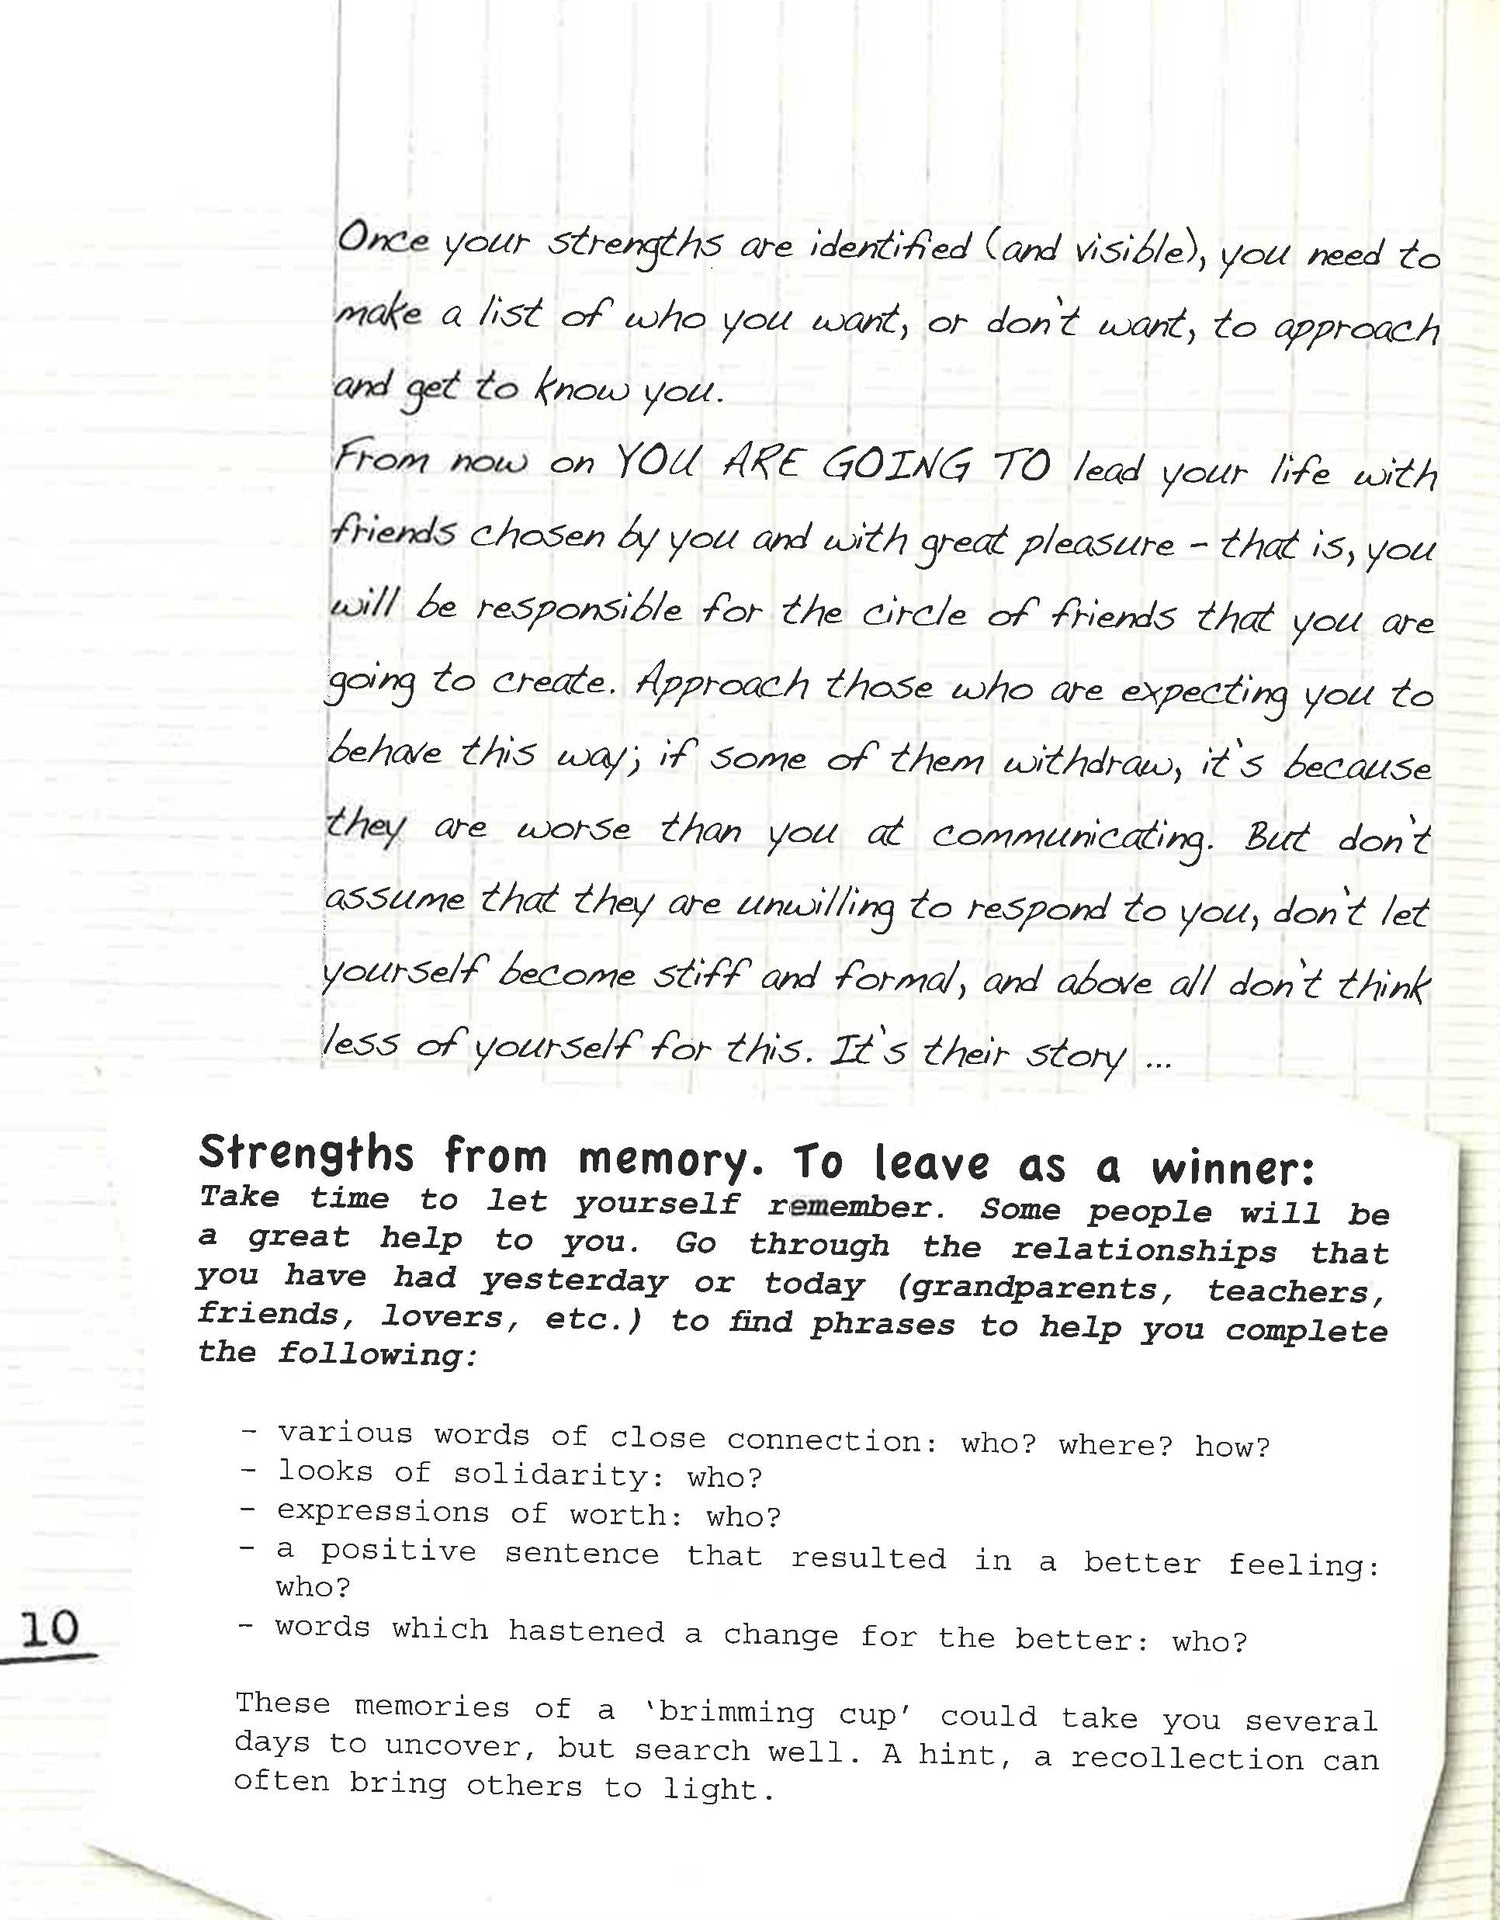 Once your strengths are identified (and visible), you need to
make a list of who you want, or don't want, to approach
and get to know you.
From now on YOU ARE GOING TO lead your life with
friends chosen by you and with great pleasure – that is, you
will be responsible for the circle of friends that you are
going to create. Approach those who are expecting you to
behave this way; if some of them withdraw, it's because
they are worse than you at communicating. But don't
assume that they are unwilling to respond to you, don't let
yourself become stiff and formal, and above all don't think
less of yourself for this. It's their story ...
Strengths from memory. To leave as a winner:
Take time to let yourself remember. Some people will be
a great help to you. Go through the relationships that
you have had yesterday or today (grandparents, teachers,
friends, lovers, etc.) to find phrases to help you complete
the following:
- various words of close connection: who? where? how?
- looks of solidarity: who?
- expressions of worth: who?
- a positive sentence that resulted in a better feeling:
who?
- words which hastened a change for the better: who?
10
These memories of a 'brimming cup' could take you several
days to uncover, but search well. A hint, a recollection can
often bring others to light.